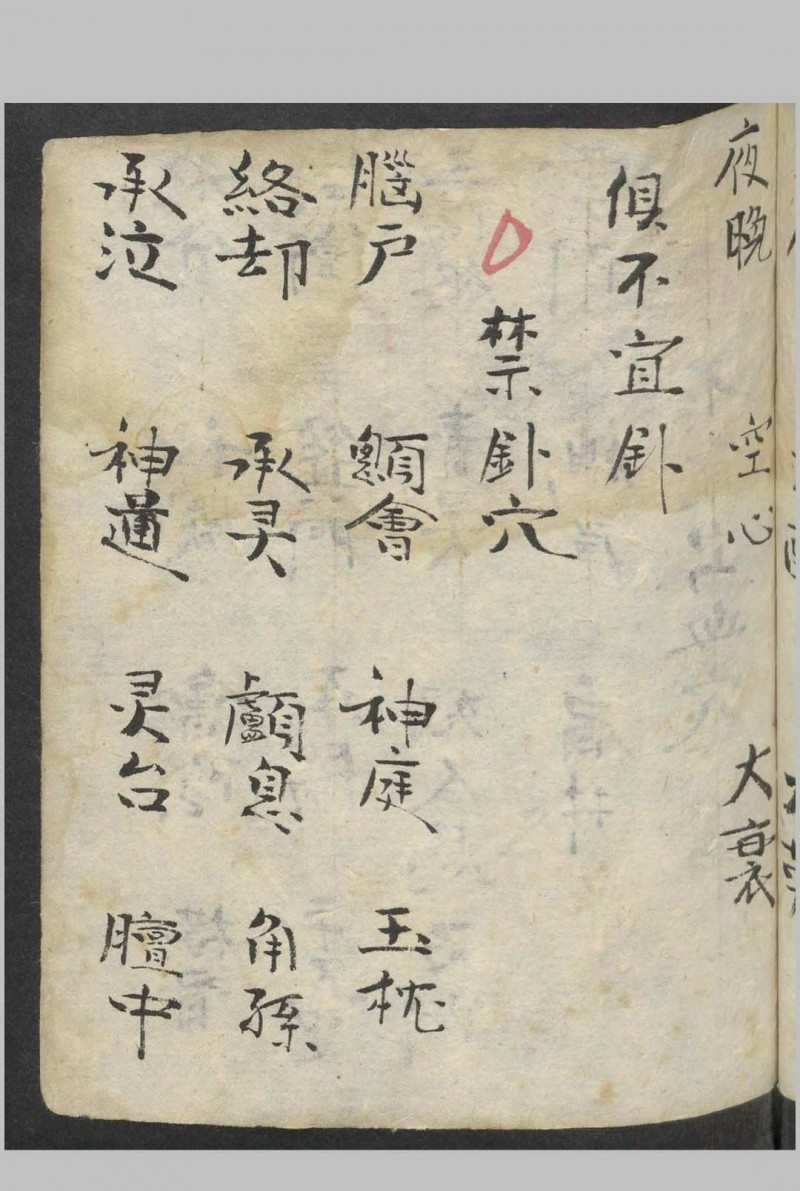 夜晚 空心 大衰
俱不宜針
禁針穴
腦户 顖會 神庭 玉枕
絡却 承灵 顱息 角孫
承泣 神道 灵台 膻中